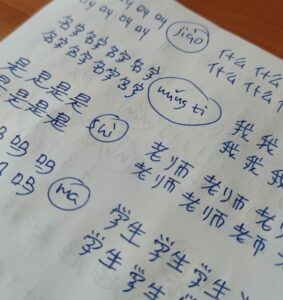 叫 叫 叫 叫
jiào
什么 什么
什么 什么
名字 名字 名字 名字
名字 名字 名字 名字
míng zi
是 是 是 是
是 是 是 是
shì
我 我
我 我
老师 老师 老师
老师 老师 老师
吗 吗
吗
ma
学生 学生 学生
学生 学生 学生